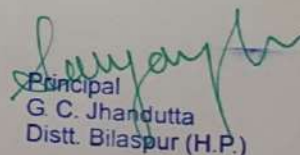 Principal
G. C. Jhandutta
Distt. Bilaspur (H.P.)